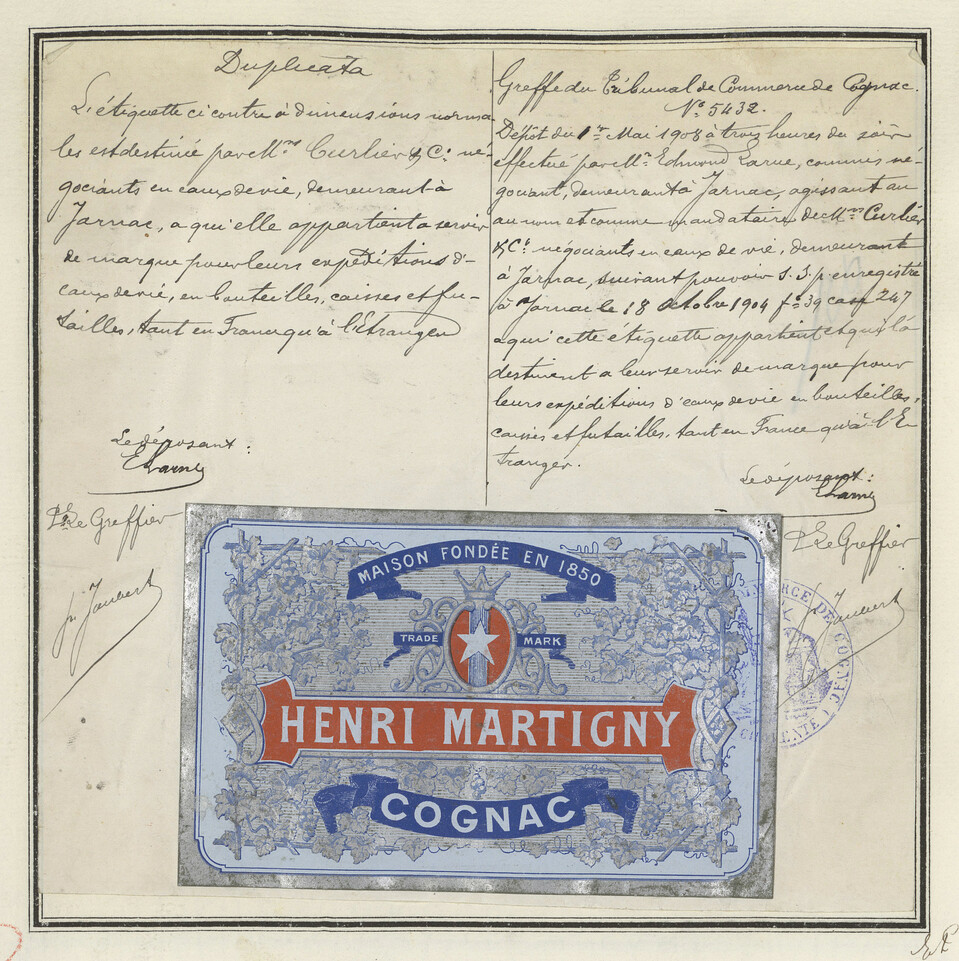 Duplicata
L'étiquette ci contre à dimensions norma-
les est destinée par M.rs Curlier & C.o né-
gociants en eaux de vie, demeurant à
Jarnac, a qu'elle appartient a servir
de marque pour leurs expéditions d'-
eaux de vie, en bouteilles, caisses et fu-
tailles, tant en France qu'à l'étranger
Le déposant:
E Larue
P.r Le Greffier
Jaubert
Greffe du Tribunal de Commerce de Cognac.
N.o 5432.
Dépôt du 1.er Mai 1908 à trois heures du soir
effectué par M.r Edmond Larue, commis né-
gociant, demeurant à Jarnac, agissant au
au nom et comme mandataire de M.rs Curlier
& C.o négociants en eaux de vie, demeurant
à Jarnac, suivant pouvoir s.s.p. enregistré
à Jarnac le 18 Octobre 1904 f.o 39 case 247
a qui cette étiquette appartient et qui la
destinent a leur servir de marque pour
leurs expéditions d'eaux de vie en bouteilles,
caisses et futailles, tant en France qu'à l'E-
tranger.
Le déposant:
E Larue
P Le Greffier
Jaubert
MAISON FONDÉE EN 1850
TRADE MARK
HENRI MARTIGNY
COGNAC
DE COGNAC